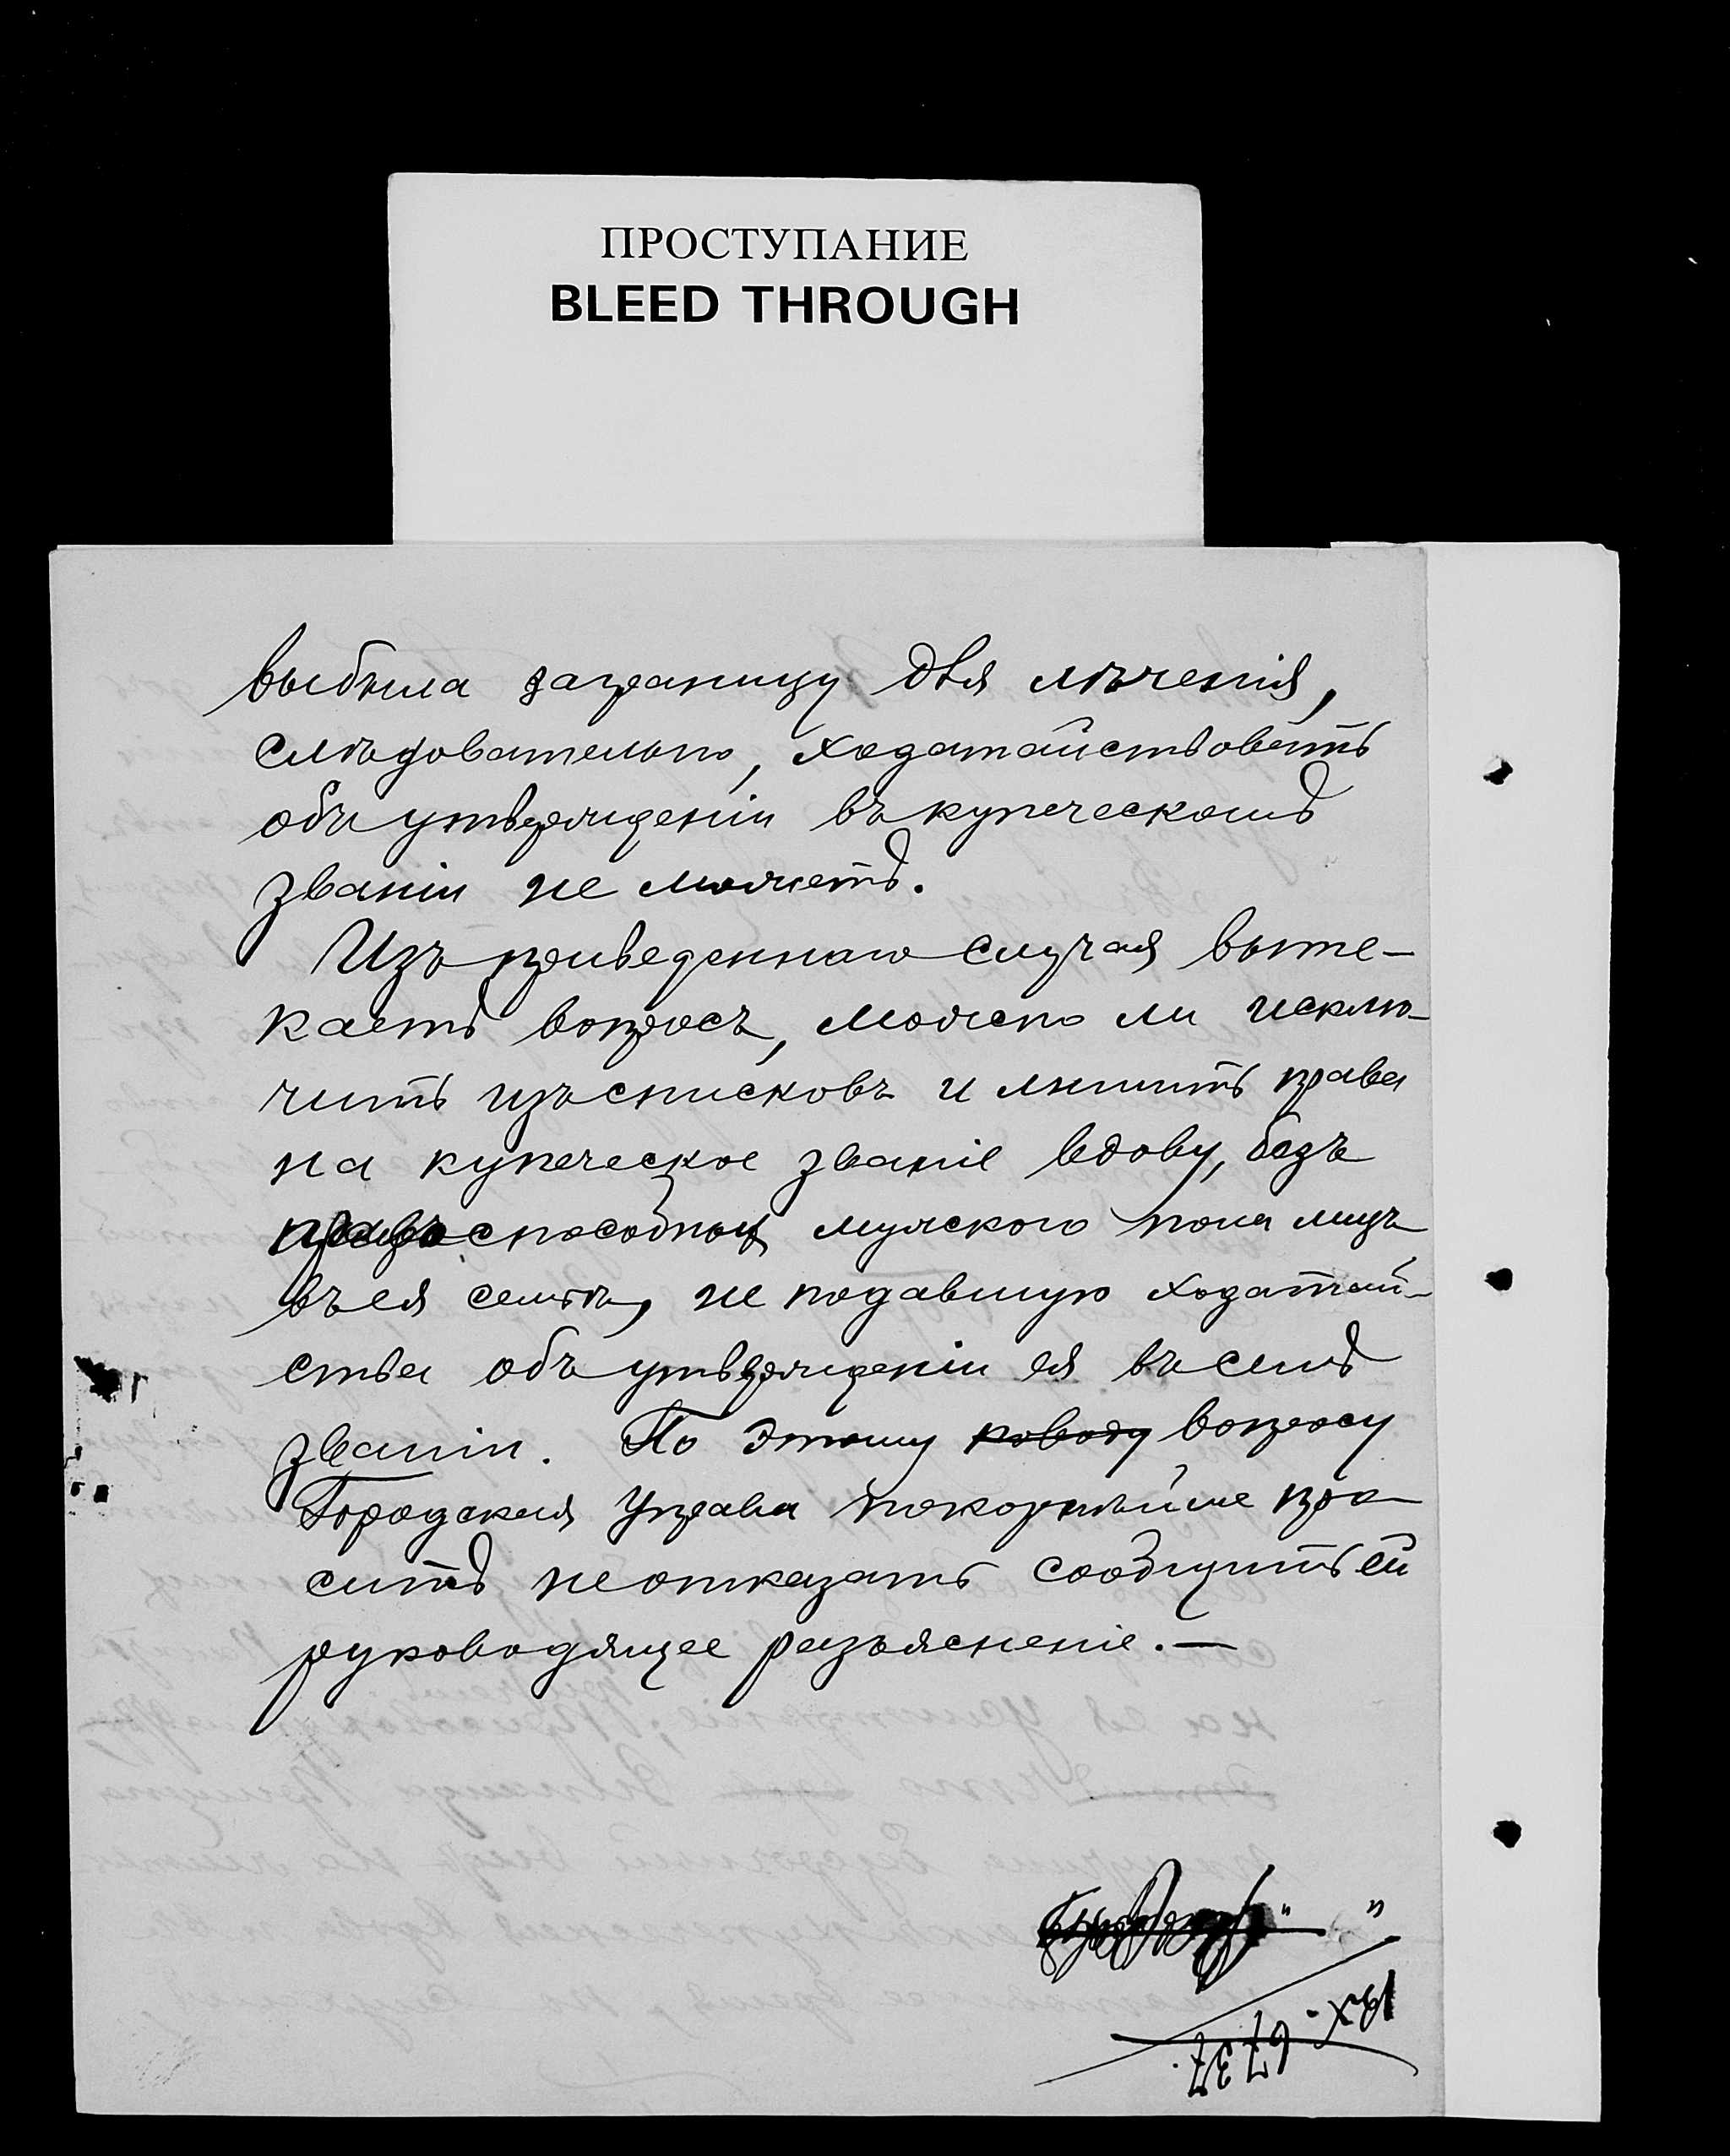 ПРОСТУПАНИЕ
BLEED THROUGH
выбыла заграницу для лѣченія,
слѣдовательно, ходатайствовать
объ утвержденіи въ купеческомъ
званіи не можетъ.
Изъ приведеннаго случая выте-
каетъ вопросъ, можно ли исклю-
чить изъ списковъ и лишить права
на купеческое званіе вдову, безъ
правоспособных мужского пола лицъ
въ ея семьѣ, не подавшую ходатай-
ства объ утвержденіи ея въ семъ
званіи. По этому поводу вопросу
Городская Управа покорнѣйше про-
ситъ не отказать сообщить ей
руководящее разъясненіе.—